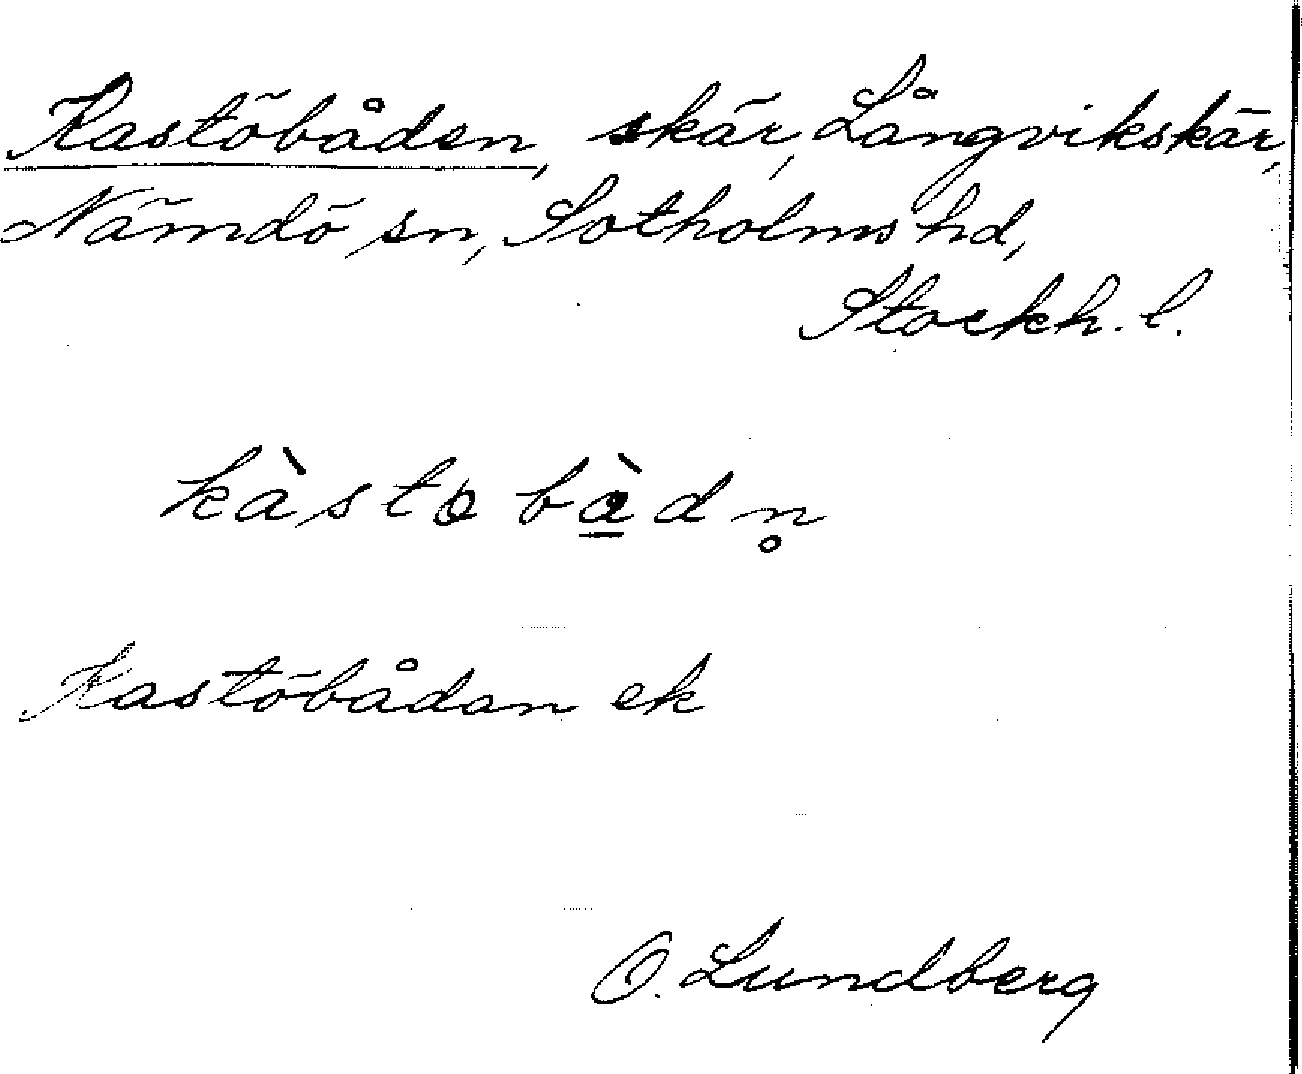 Kastöbåden, skär, Långvikskär,
Nämdö sn, Sotholms hd,
Stockh. l.
kàstobàdn̥
Kastöbådan ek
O. Lundberg